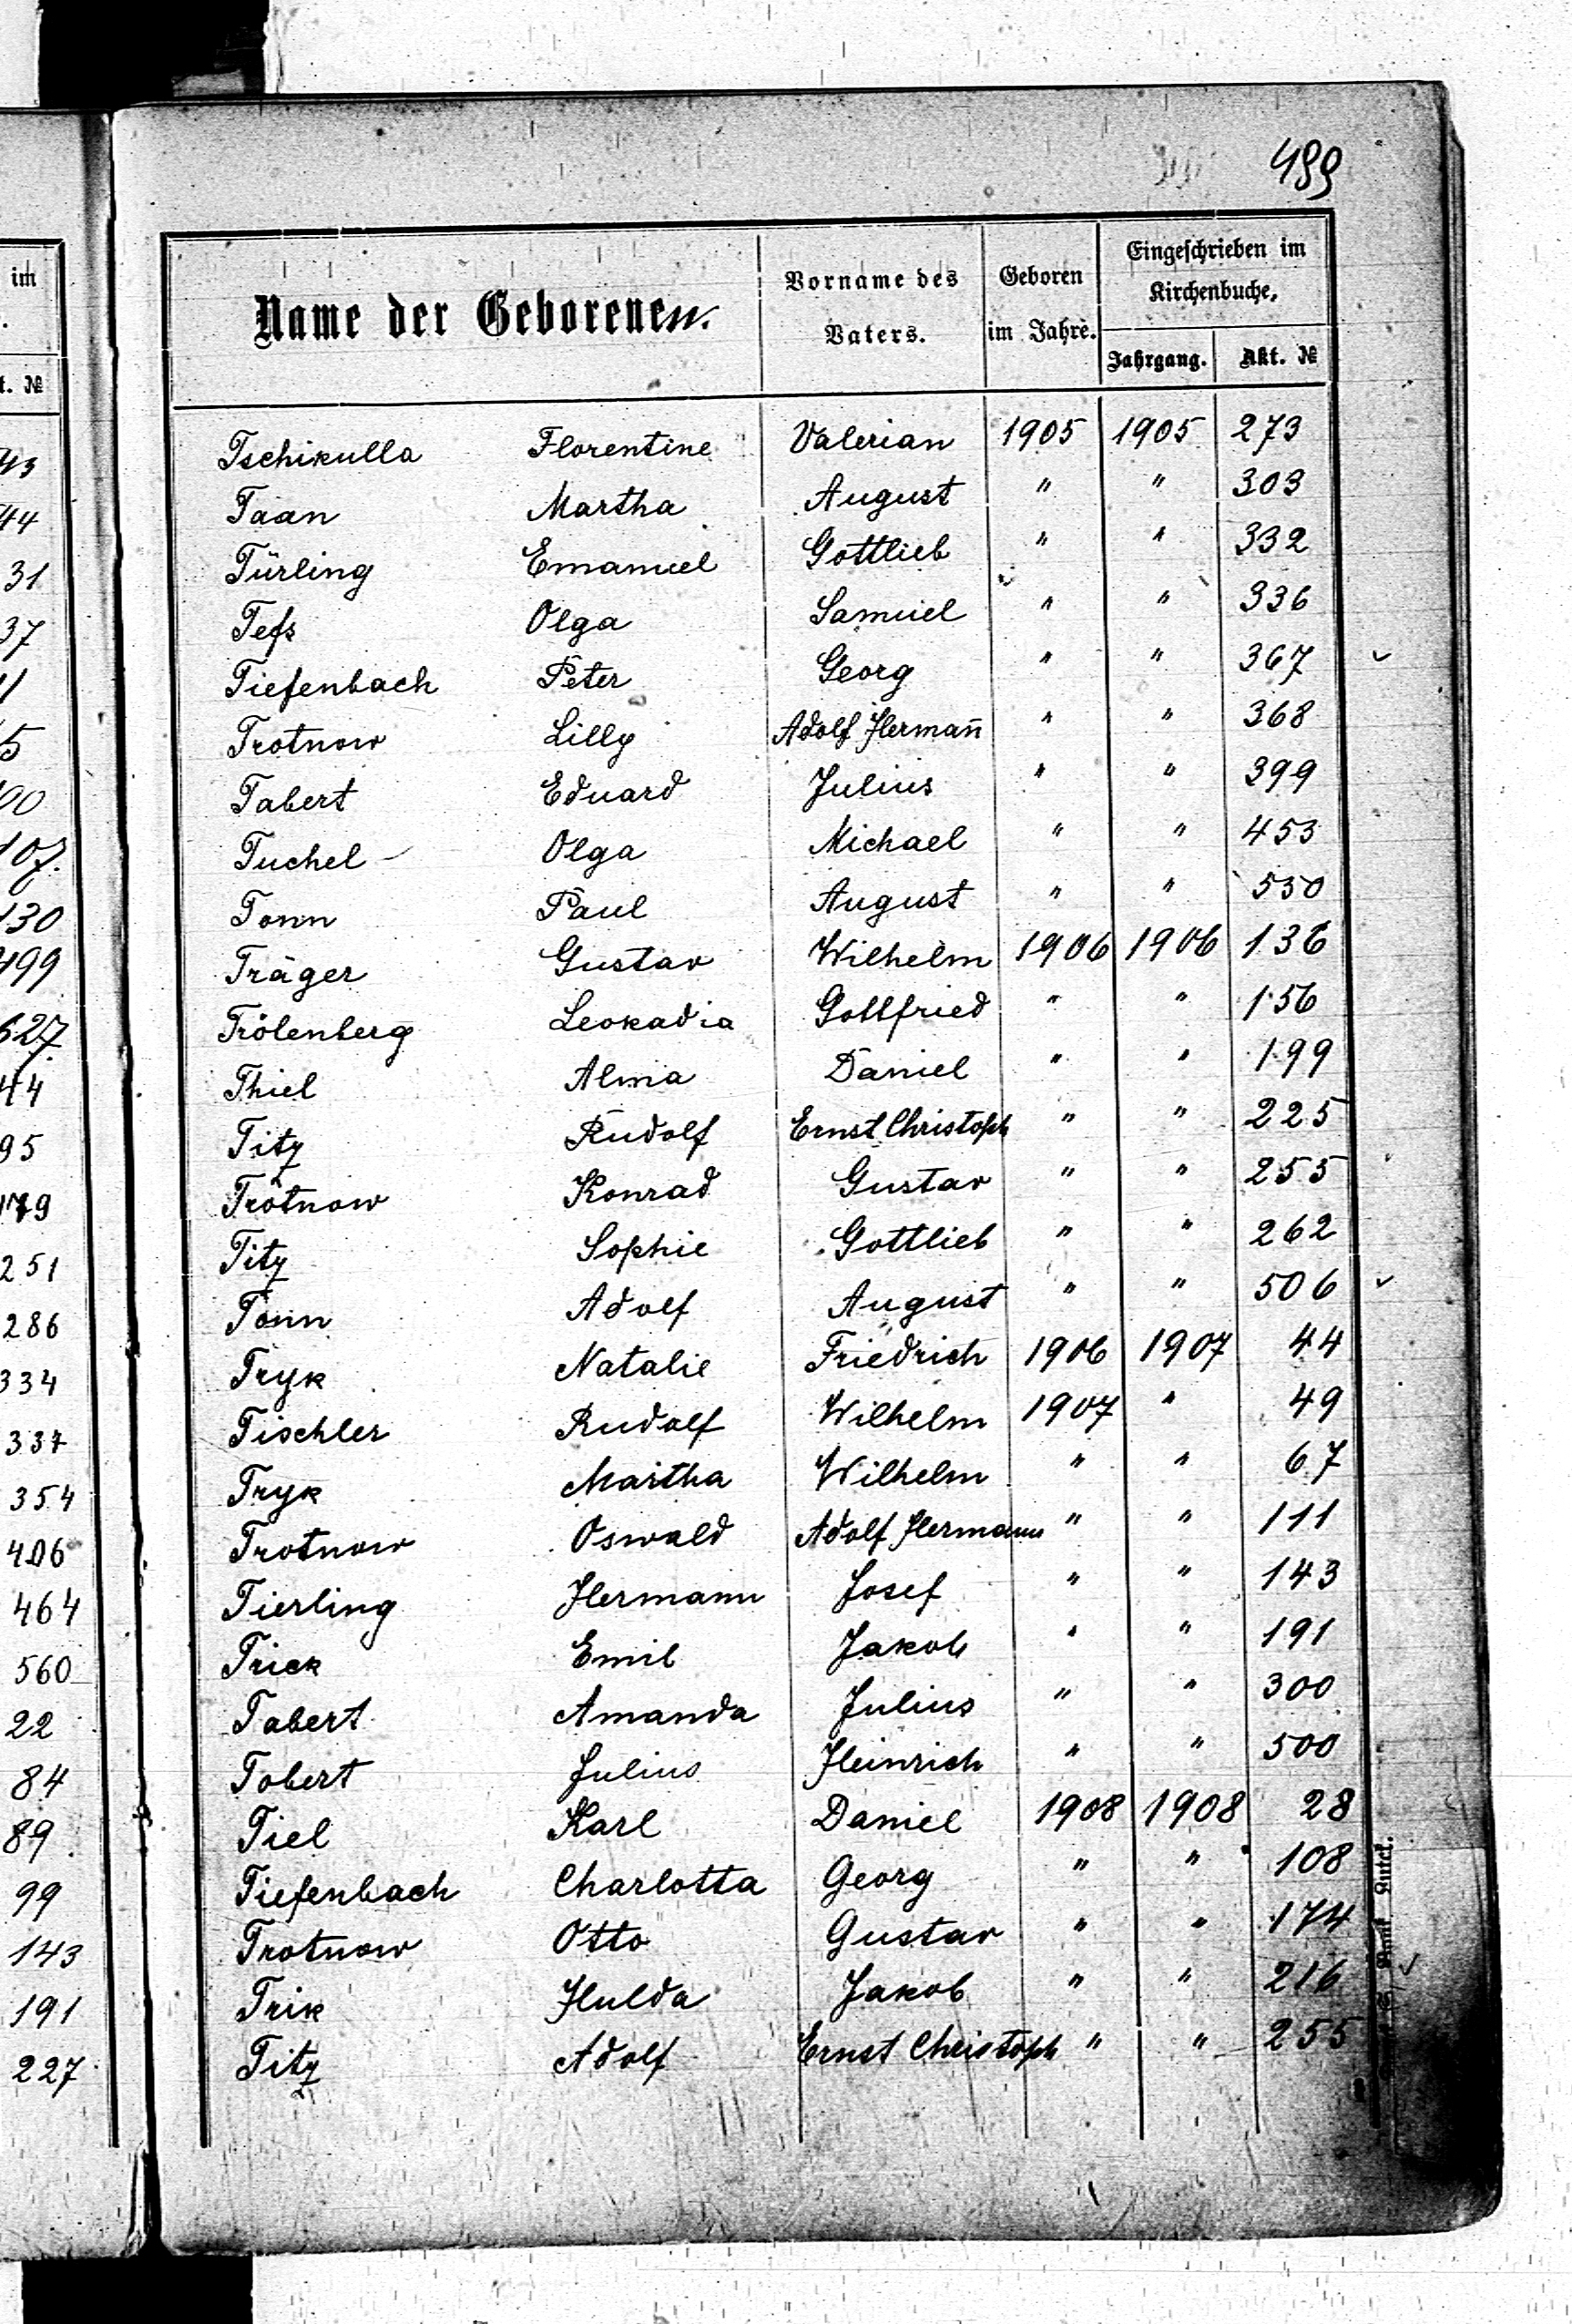 499
im
t. №
43
44
31
37
11
5
00
107.
130
499
627
44
95
179
251
286
334
337
354
406
464
560
22
84
89
99
143
191
227
Name der Geborenen.
Vorname des Vaters.
Geboren im Jahre.
Eingeschrieben im Kirchenbuche,
Jahrgang. Akt. №
Tschikulla Florentine Valerian 1905 1905 273
Taan Martha August " " 303
Türling Emanuel Gottlieb " " 332
Tefs Olga Samuel " " 336
Tiefenbach Peter Georg " " 367
Trotnow Lilly Adolf Hermañ " " 368
Tabert Eduard Julius " " 399
Tuchel Olga Michael " " 453
Tonn Paul August " " 550
Träger Gustav Wilhelm 1906 1906 136
Trölenberg Leokadia Gottfried " " 156
Thiel Alma Daniel " " 199
Titz Rudolf Ernst Christoph " " 225
Trotnow Konrad Gustav " " 255
Titz Sophie Gottlieb " " 262
Tonn Adolf August " " 506
Tryk Natalie Friedrich 1906 1907 44
Tischler Rudolf Wilhelm 1907 " 49
Tryk Martha Wilhelm " " 67
Trotnow Oswald Adolf Hermann " " 111
Tierling Hermann Josef " " 143
Trick Emil Jakob " " 191
Tabert Amanda Julius " " 300
Tobert Julius Heinrich " " 500
Tiel Karl Daniel 1908 1908 28
Tiefenbach Charlotta Georg " " 108
Trotnow Otto Gustav " " 174
Trik Hulda Jakob " " 216
Titz Adolf Ernst Christoph " " 255